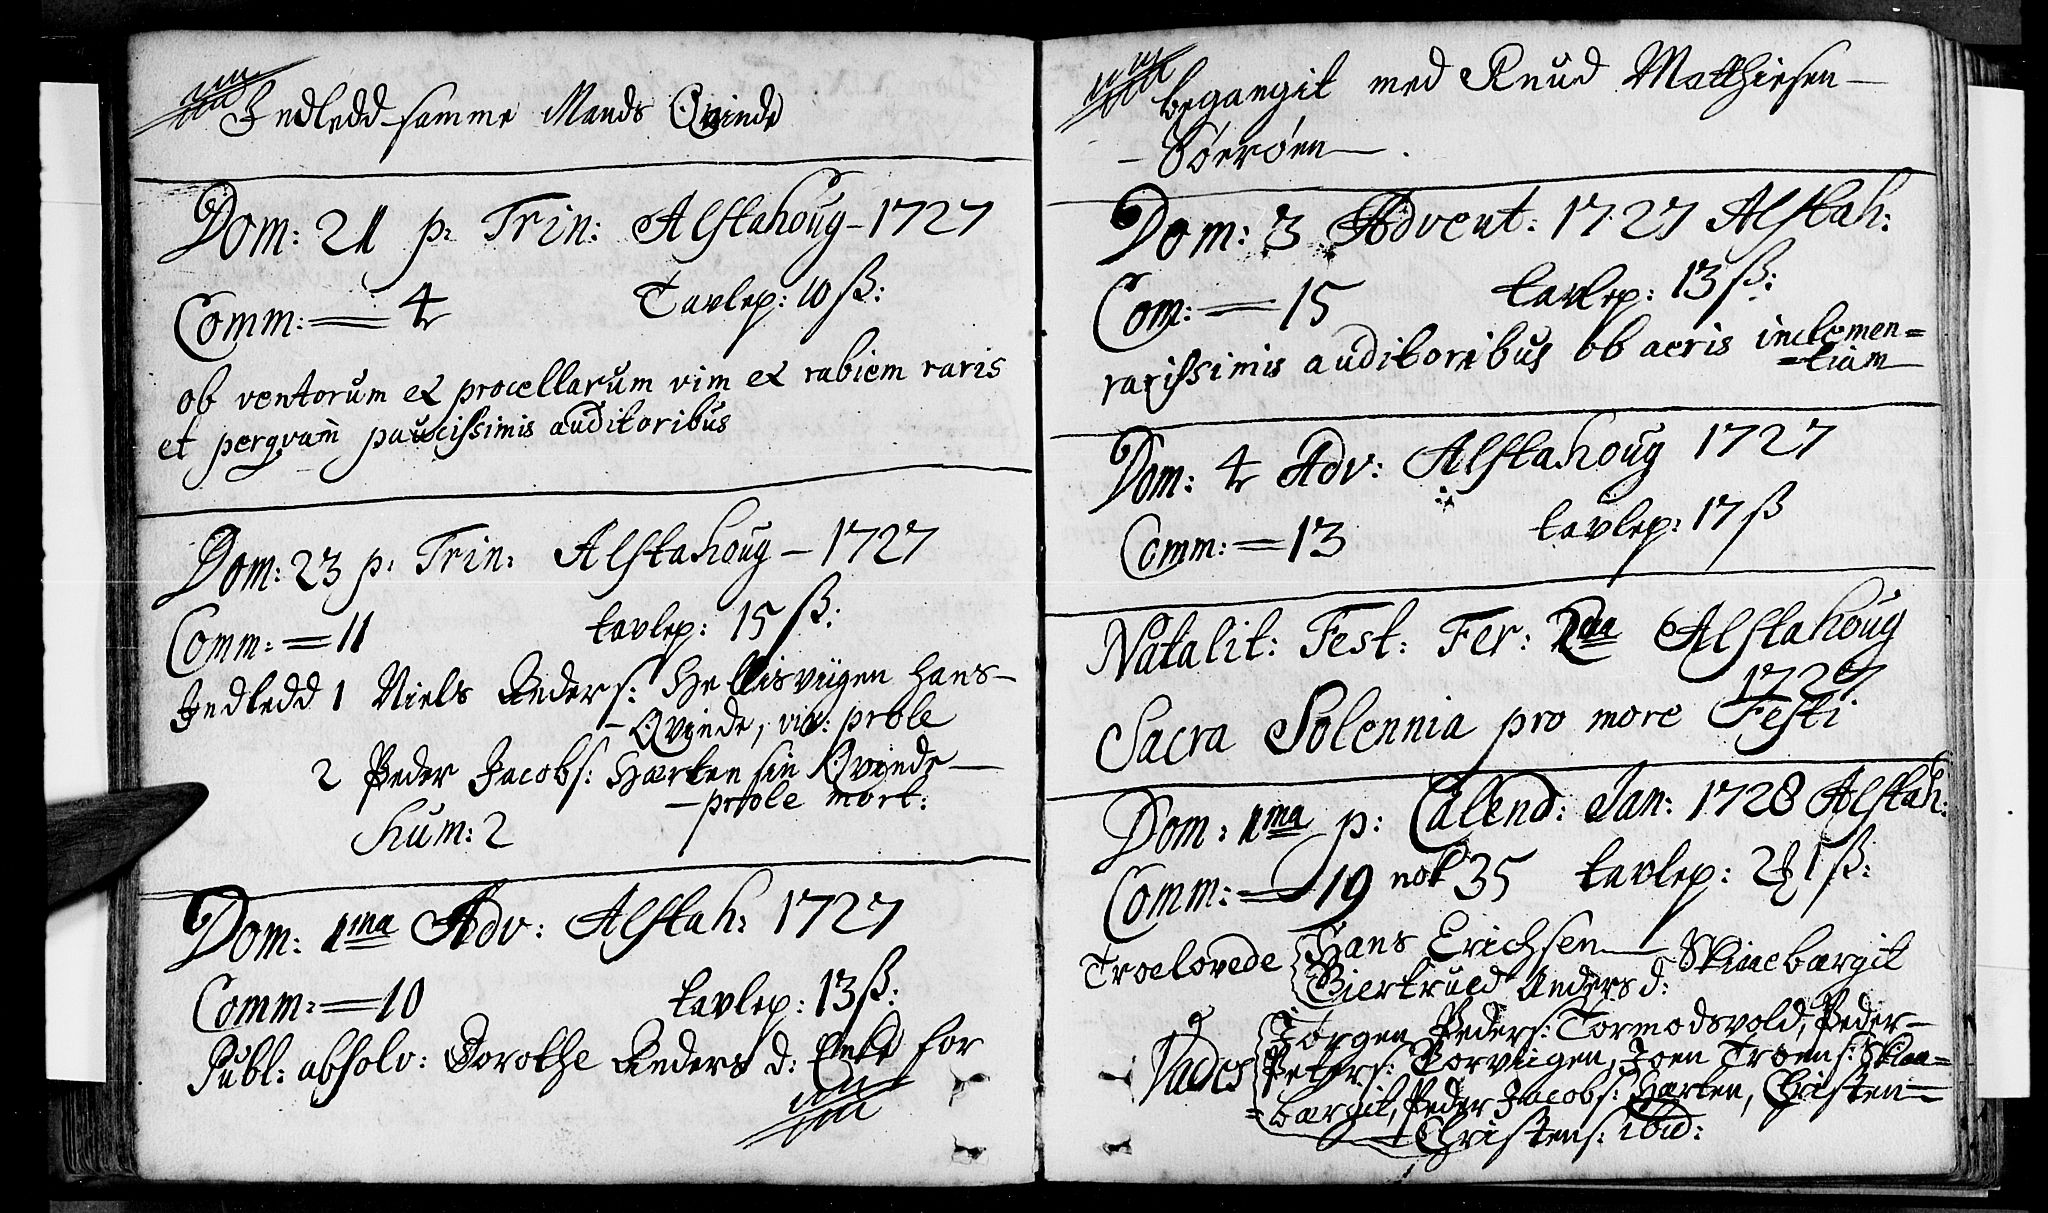 Indledd samme Mands Qvinde
Dom: 21 p. Trin: Alstahoug - 1727
Comm: = 4 Tavlep: 10 ß:
ob ventorum et procellarum vim et rabiem raris
et perqvam paucissimis auditoribus
Dom: 23 p. Trin: Alstahoug - 1727
Comm: = 11 tavlep: 15 ß:
Indledd 1 Niels Anders: Hellisviigen hans-
-Qvinde, viv: prole
2 Peder Jacobs: Hærten sin Qvinde-
-prole mort:
hum: 2
Dom: 1ma Adv: Alstah: 1727
Comm: = 10 tavlep: 13 ß:
Publ: absolv: Dorothe Anders d: Enke for
begangit med Knud Matthiesen-
-Sørøen-.
Dom: 3 Advent: 1727 Alstah:
Com: = 15 tavlep: 13 ß:
rarissimis auditoribus ob aeris inclemen=
=tiam
Dom: 4 Adv: Alstahoug 1727
Comm: = 13 tavlep: 17 ß
Natalit: Fest: Fer: 2da Alstahoug
1727
Sacra Solennia pro more Festi
Dom: 1ma p: Calend: Jan: 1728 Alstah:
Comm: = 19 nok 35 tavlep: 2 1 ß:
Troelovede Hans Erichsen - Skinebærgit
Giertrued Anders d:
Jørgen Peders: Tormodsvold, Peder-
Vades Peters: Torviigen, Joen Troens: Skine=
=bærgit, Peder Jacobs: Hærten, Christen-
-Christens: ibid: